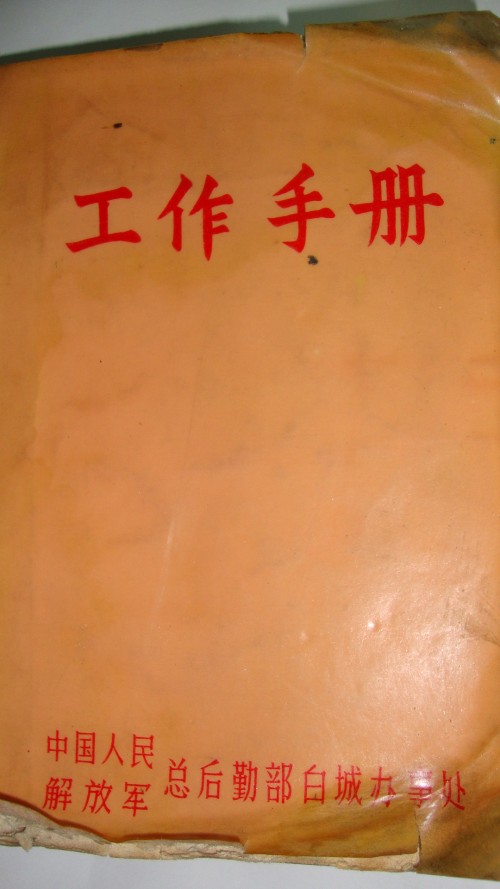 工作手册
中国人民
解放军
总后勤部白城办事处